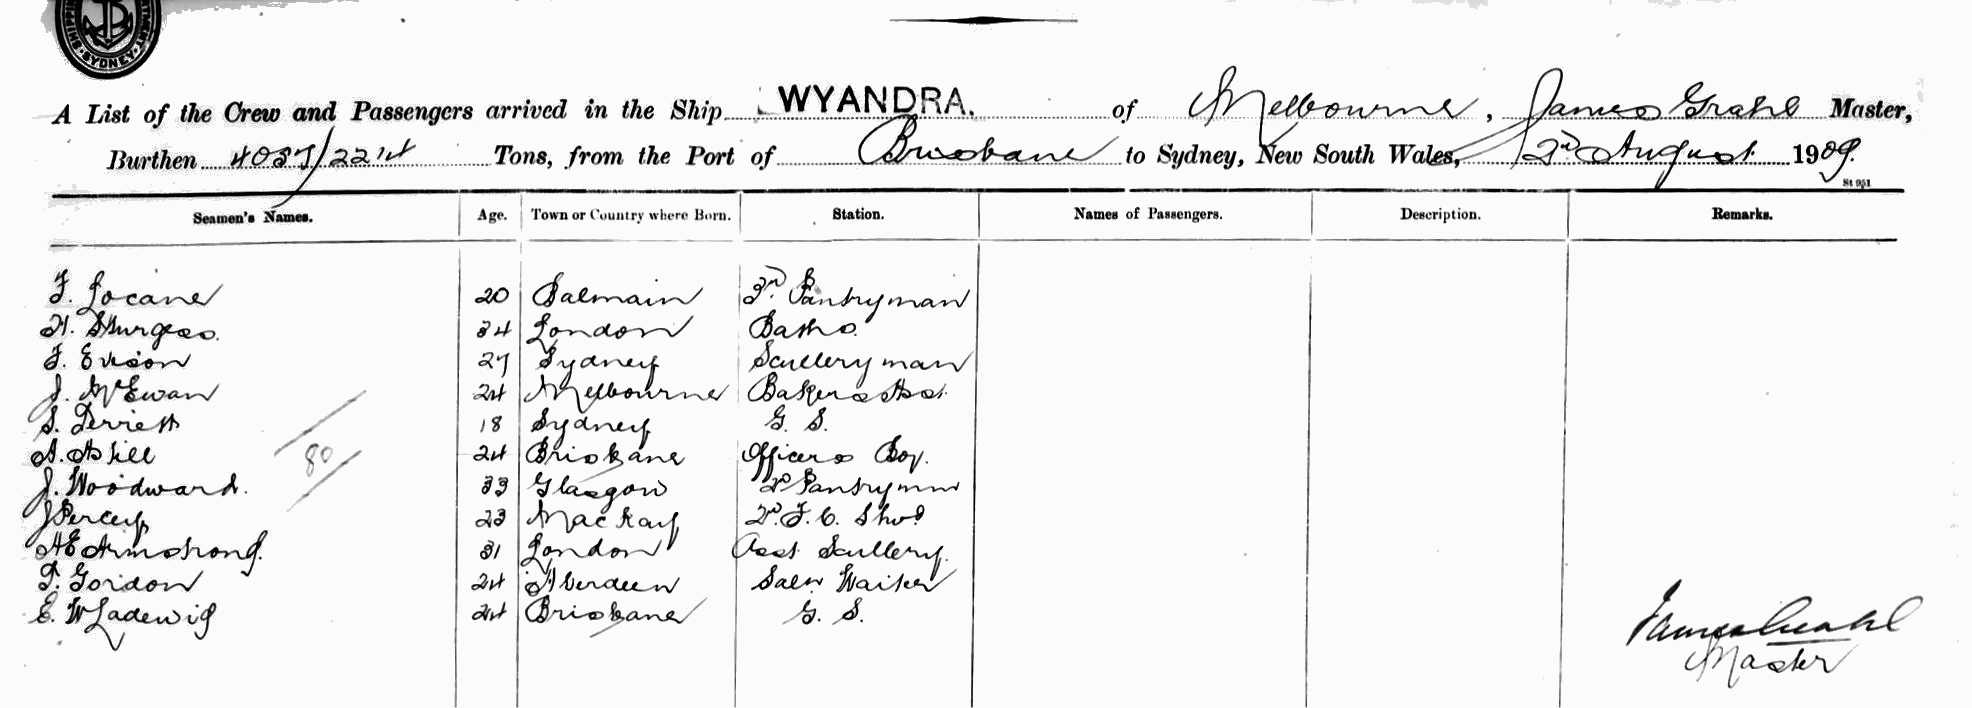 SHIPPI RTMENT SYDNEY
A List of the Crew and Passengers arrived in the Ship WYANDRA. of Melbourne, James Grahl Master,
Burthen 4057/2214 Tons, from the Port of Brisbane to Sydney, New South Wales, 2nd August 1909.
St 951
Seamen's Names. Age. Town or Country where Born. Station. Names of Passengers. Description. Remarks.
F. Locane 20 Balmain 3rd Pantryman
H. Sturgess. 34 London Baths.
F. Evison 27 Sydney Sculleryman
J. McEwan 24 Melbourne Bakers Asst.
S. Derrett 18 Sydney G. S.
A. Hill 24 Brisbane Officers Boy.
80
J. Woodward. 33 Glasgow 2nd Pantryman
J Percy 23 MacKay 2nd F. C. Stwd
AE Armstrong. 31 London Asst Scullery.
T. Gordon 24 Aberdeen Saln Waiter
E. W Ladewig 24 Brisbane G. S.
James Grahl
Master